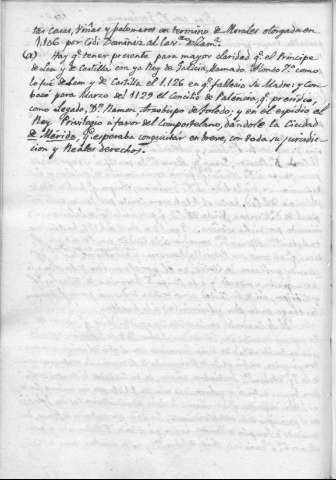 tas casas, Viñas y palomares en termino de Morales otorgada en
1106 por Cidi Dominiz al
(a) Hay q.e tener presente para mayor claridad q.e el Principe
de Leon y de Castilla era ya Rey de Galicia, llamado Alonso 7.o como
lo fué de Leon y de Castilla el 1.126 en q.e fallecio su Madre; y con-
bocó para Marzo del 1129 el Concilio de Palencia, q.e presidio,
como Legado, D.n Ramon Arzobispo de Toledo; y en el espidio el
Rey Privilegio á favor del Compostelano, dandole la Ciudad
de Mérida, q.e esperaba conquistar en breve, con toda su jurisdic-
cion y Reales derechos.